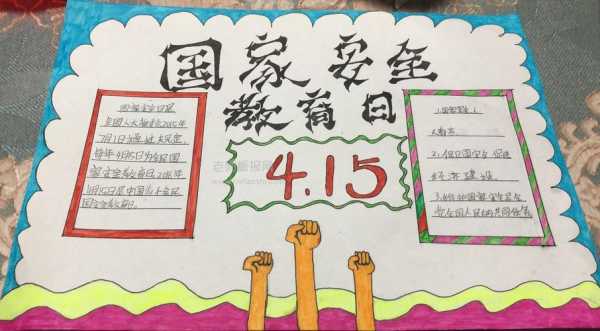 国家安全
教育日
4.15
国家安全日是
全国人大常委2015年
7月1日通过决定，
每年4月15日为全民国
家安全教育日，2016年
4月15日是中国首个全民
国家安全教育日。
1.国家安全人
人有责
2.保卫国家安全 促进
经济建设
3.维护国家安全是全
党全国人民的共同任务
老师板报网